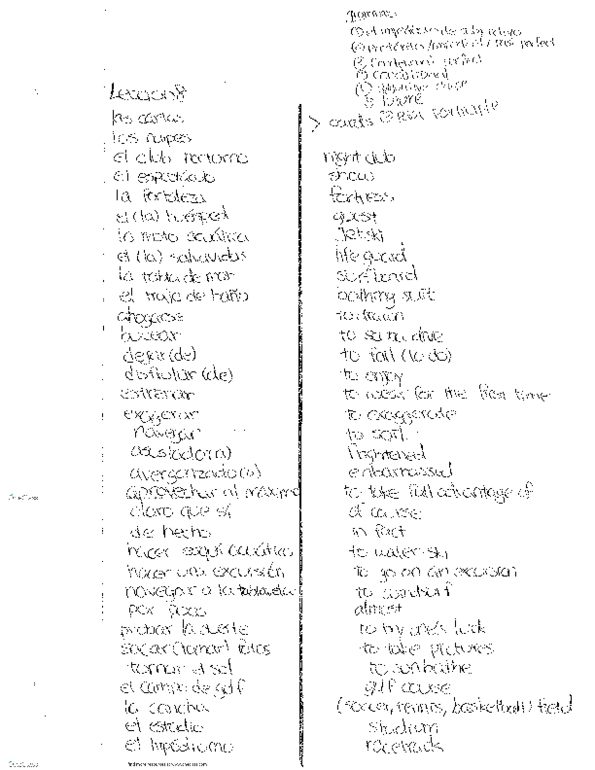 Grammar:
① el imperfecto de subjuntivo
② preterites / imperfect / past perfect
③ Conditional perfect
④ conditional
future
Leccion 8
las cartas
los naipes
> cards
el club nocturno
night club
el espectáculo
show
la fortaleza
fortress
el (la) huésped
guest
la moto acuática
Jet ski
el (la) salvavidas
life guard
la tabla de mar
surfboard
el traje de baño
bathing suit
ahogarse
to drown
bucear
to scuba dive
dejar (de)
to fail (to do)
disfrutar (de)
to enjoy
estrenar
to wear for the first time
exagerar
to exaggerate
navegar
to sail
asustado(a)
frightened
avergonzado(a)
embarrassed
aprovechar al máximo
to take full advantage of
claro que sí
of cause
de hecho
in fact
hacer esquí acuático
to water ski
hacer una excursión
to go on an excursion
navegar a la tabla vela
to windsurf
por poco
almost
probar la suerte
to try one's luck
sacar (tomar) fotos
to take pictures
tomar el sol
to sunbathe
el campo de golf
golf cause
la cancha
(soccer, tennis, basketball) field
el estadio
stadium
el hipódromo
racetrack